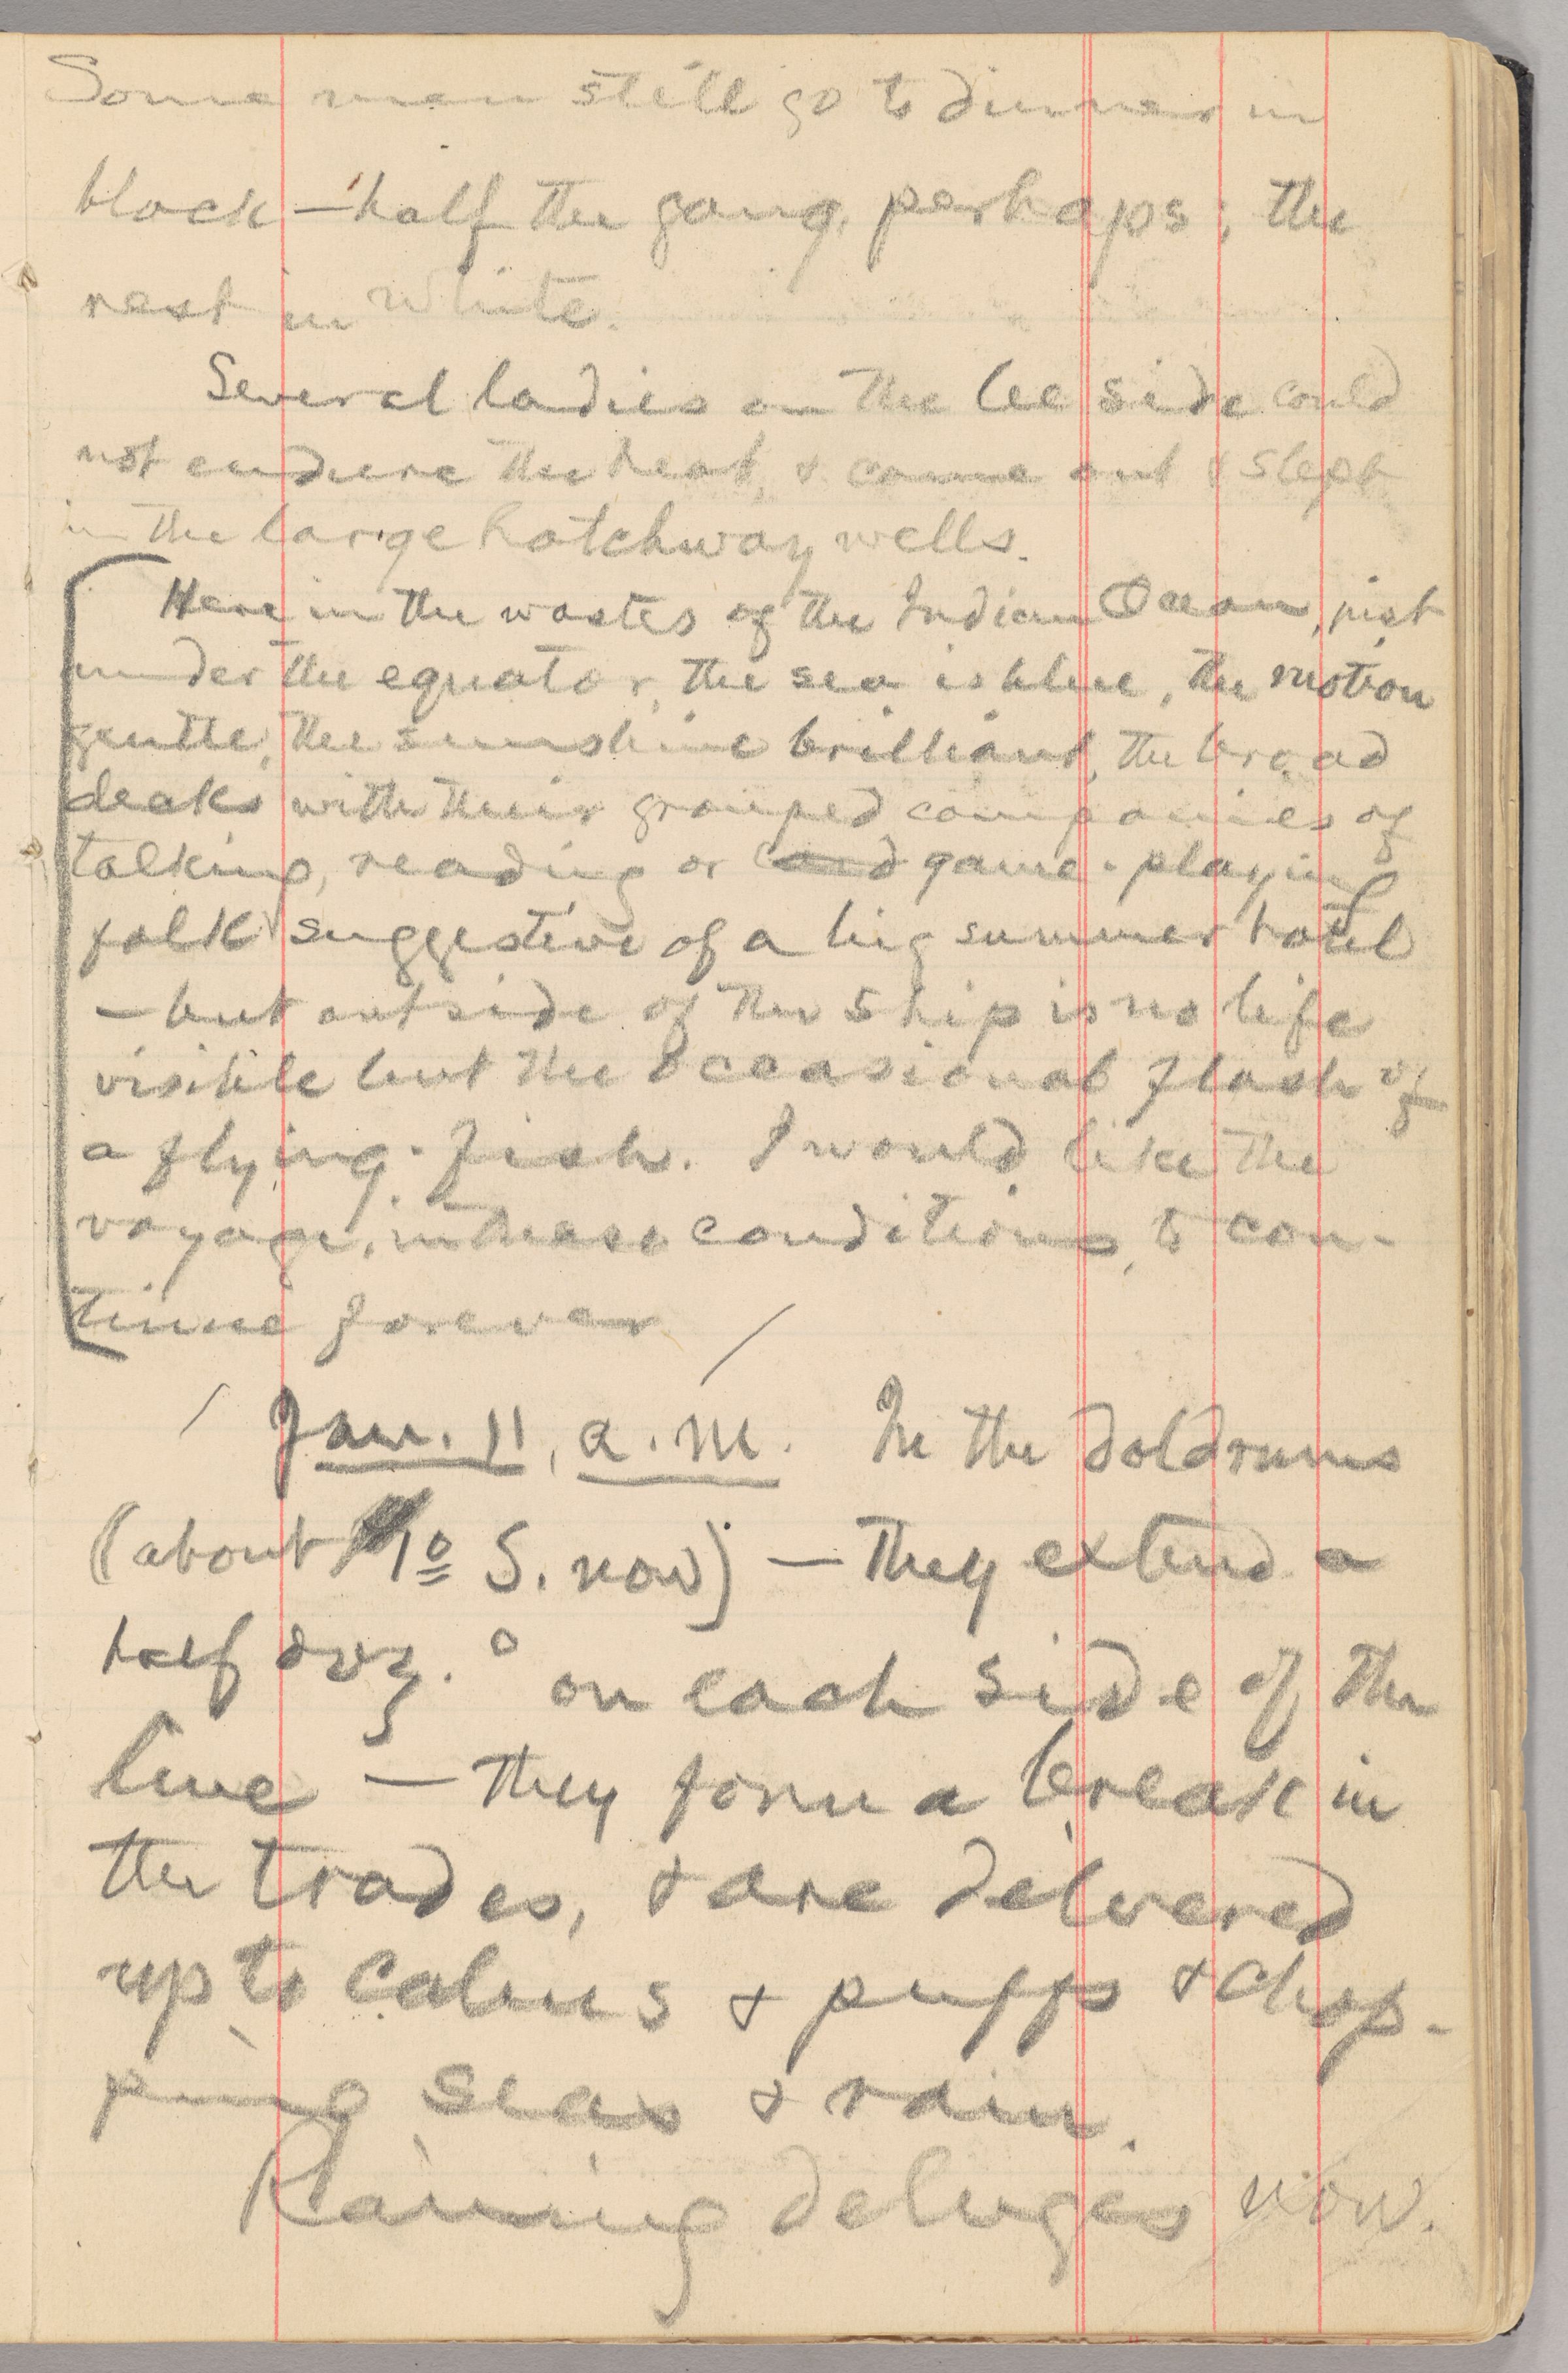 Some men still go to dinner in
black — half the gang, perhaps; the
rest in white.
Several ladies on the lee side could
not endure the heat, & came out & slept
in the large hatchway wells.
Here in the wastes of the Indian Ocean, just
under the equator, the sea is blue, the motion
gentle, the sunshine brilliant, the broad
decks with their grouped companies of
talking, reading or card game-playing
folk suggestive of a big summer hotel
— but outside of the ship is no life
visible but the occasional flash of
a flying-fish. I would like the
voyage, in these conditions, to con-
tinue forever /
/ Jan. 11, a.m. In the doldrums
(about 1° S. now) — they extend a
half doz. ° on each side of the
line — they form a break in
the trades, & are delivered
up to calms & puffs & chop-
ping seas & rain.
Raining deluges now.